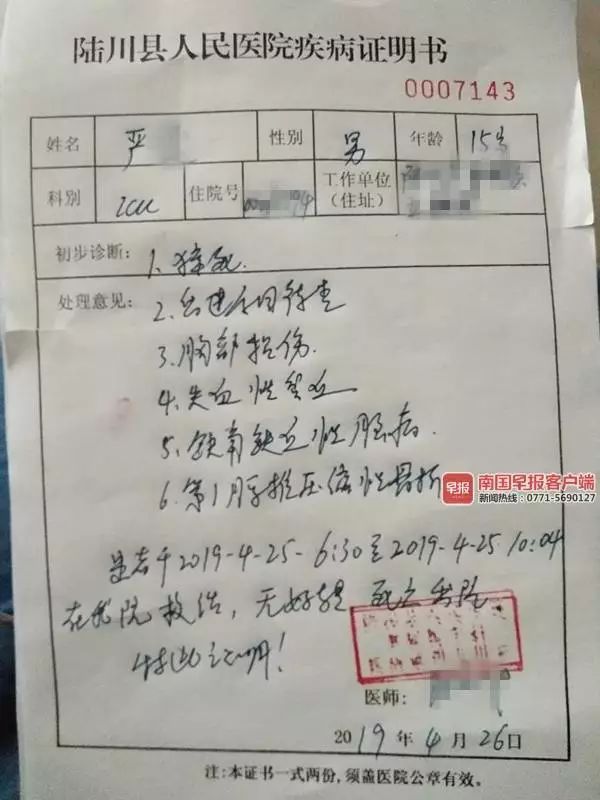 陆川县人民医院疾病证明书
0007143
姓名 严 性别 男 年龄 15岁
科别 ICU 住院号 工作单位（住址）
初步诊断：1.猝死
处理意见：2.出血原因待查
3.胸部损伤.
4.失血性贫血
5.缺氧缺血性脑病.
6.第1腰椎压缩性骨折
早报 南国早报客户端
新闻热线：0771-5690127
患者于2019-4-25-6:30至2019-4-25.10:04
在我院救治，无好转 死亡出院
特此证明！
医师：
2019年4月26日
注:本证书一式两份,须盖医院公章有效。